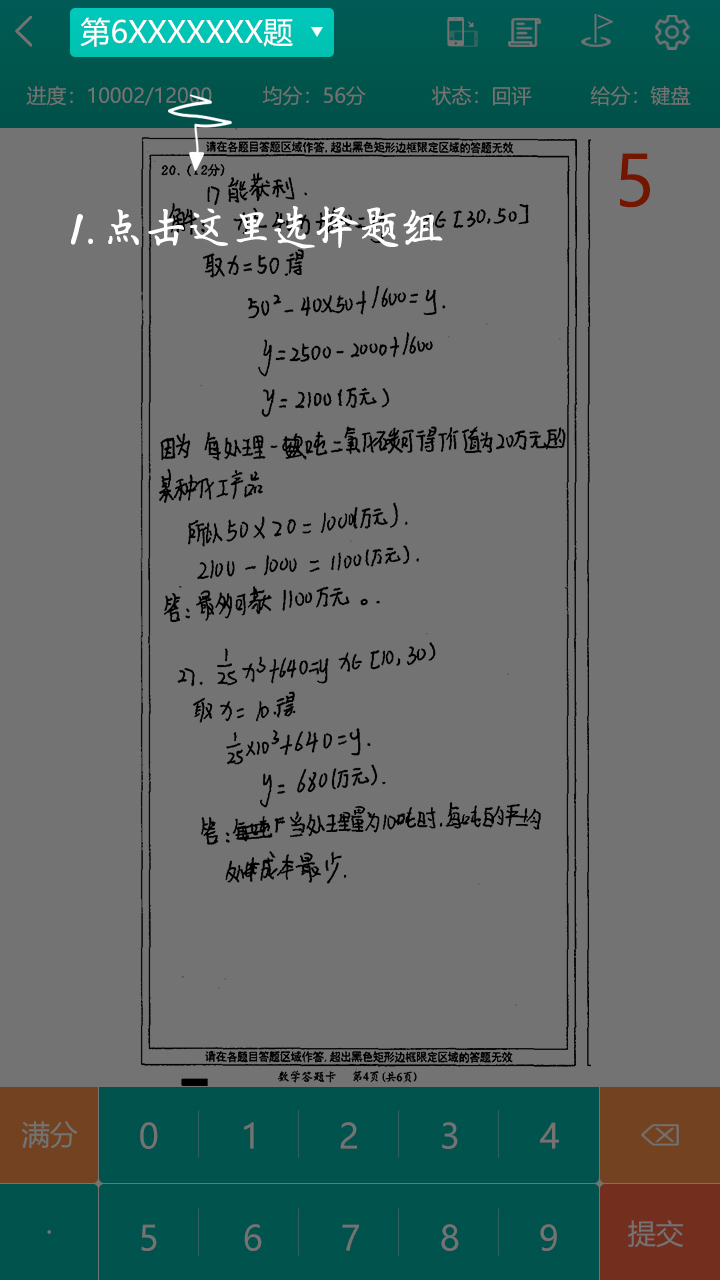 第6XXXXXXX题
进度：10002/12000 均分：56分 状态：回评 给分：键盘
请在各题目答题区域作答，超出黑色矩形边框限定区域的答题无效
5
20.（12分）
1) 能获利.
1.点击这里选择题组
∈[30,50]
取x=50得
50²-40×50+1600=y.
y=2500-2000+1600
y=2100(万元)
因为 每处理一吨二氧化碳可得价值为20万元的
某种化工产品
所以50×20=1000(万元).
2100-1000=1100(万元).
答:最多可获1100万元。.
2). 1/25 x³+640=y x∈[10,30)
取x=10.得
1/25×10³+640=y.
y=680(万元).
答: 当处理量为10吨时.每吨的平均
成本最少.
请在各题目答题区域作答，超出黑色矩形边框限定区域的答题无效
数学答题卡 第4页(共6页)
满分 0 1 2 3 4
· 5 6 7 8 9 提交